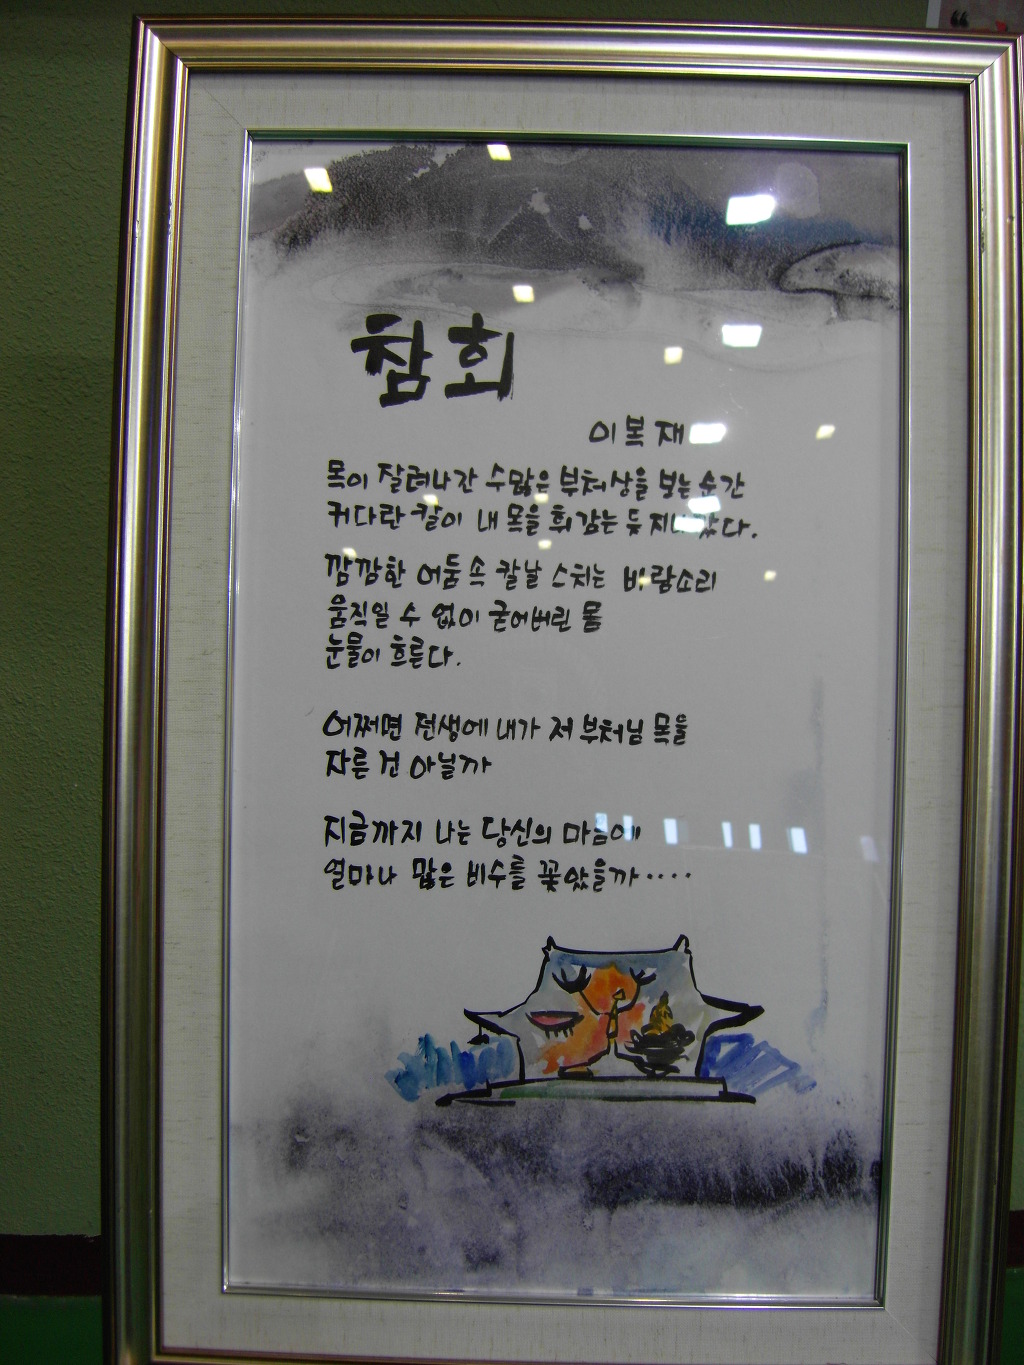 참회
이복재
목이 잘려나간 수많은 부처상을 보는 순간
커다란 칼이 내 목을 휘감는 듯 지나갔다.
깜깜한 어둠 속 칼날 스치는 바람소리
움직일 수 없이 굳어버린 몸
눈물이 흐른다.
어쩌면 전생에 내가 저 부처님 목을
자른 건 아닐까
지금까지 나는 당신의 마음에
얼마나 많은 비수를 꽂았을까....